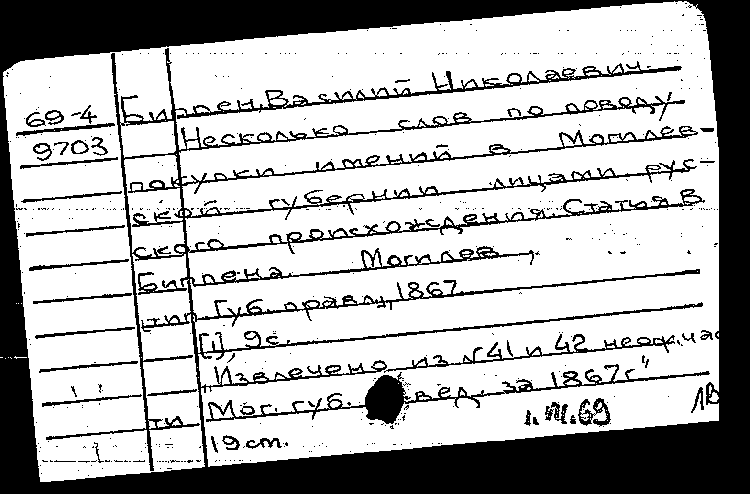 69-4 Бирпен, Василий Николаевич.
9703 Несколько слов по поводу
покупки имений в Могилев-
ской губернии лицами рус-
ского происхождения. Статья В.
Бирпена. Могилев,
тип. Губ. правл., 1867.
[1], 9 с.
„Извлечено из №41 и 42 неоф. час
ти Мог. губ. вед. за 1867г"
19 cm. 1.VII.69 1В